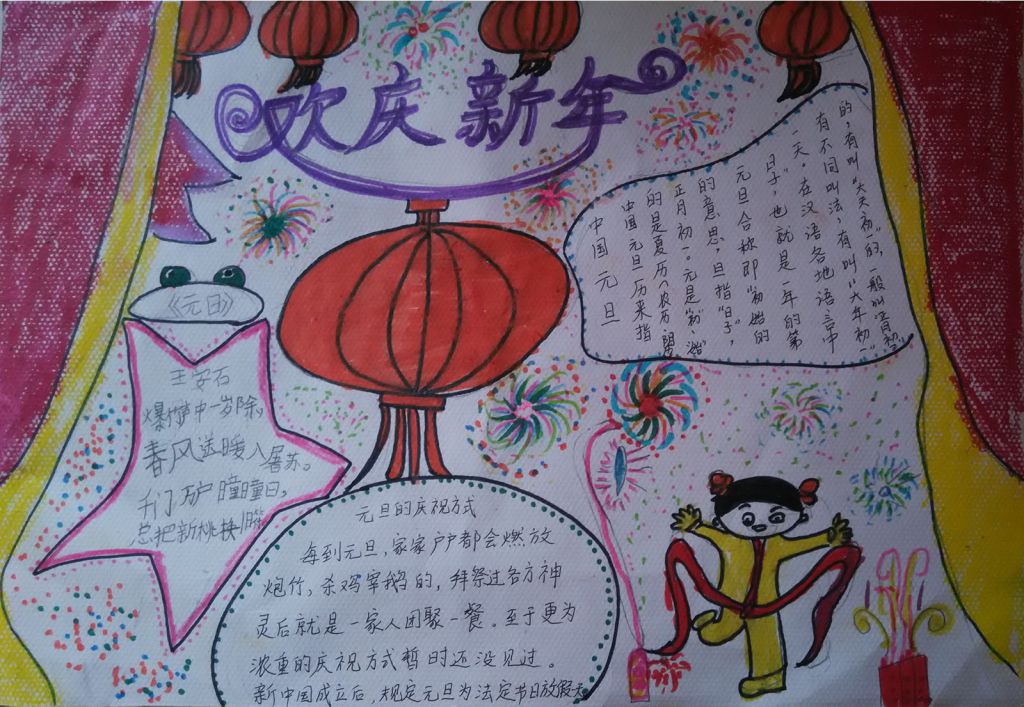 欢庆新年
《元日》
王安石
爆竹声中一岁除。
春风送暖入屠苏。
千门万户瞳瞳日,
总把新桃换旧符
中国元旦
中国元旦历来指
的是夏历(农历、阴历
正月初一。元是"初""始"
的意思,旦指"日子",
元旦合称即"初始的
日子",也就是一年的第
一天。在汉语各地语言中
有不同叫法,有叫"大年初一"
的,有叫"大天初"的,一般叫"正月初
元旦的庆祝方式
每到元旦,家家户户都会燃放
炮竹,杀鸡宰鹅的,拜祭过各方神
灵后就是一家人团聚一餐。至于更为
浓重的庆祝方式暂时还没见过。
新中国成立后,规定元旦为法定节日放假